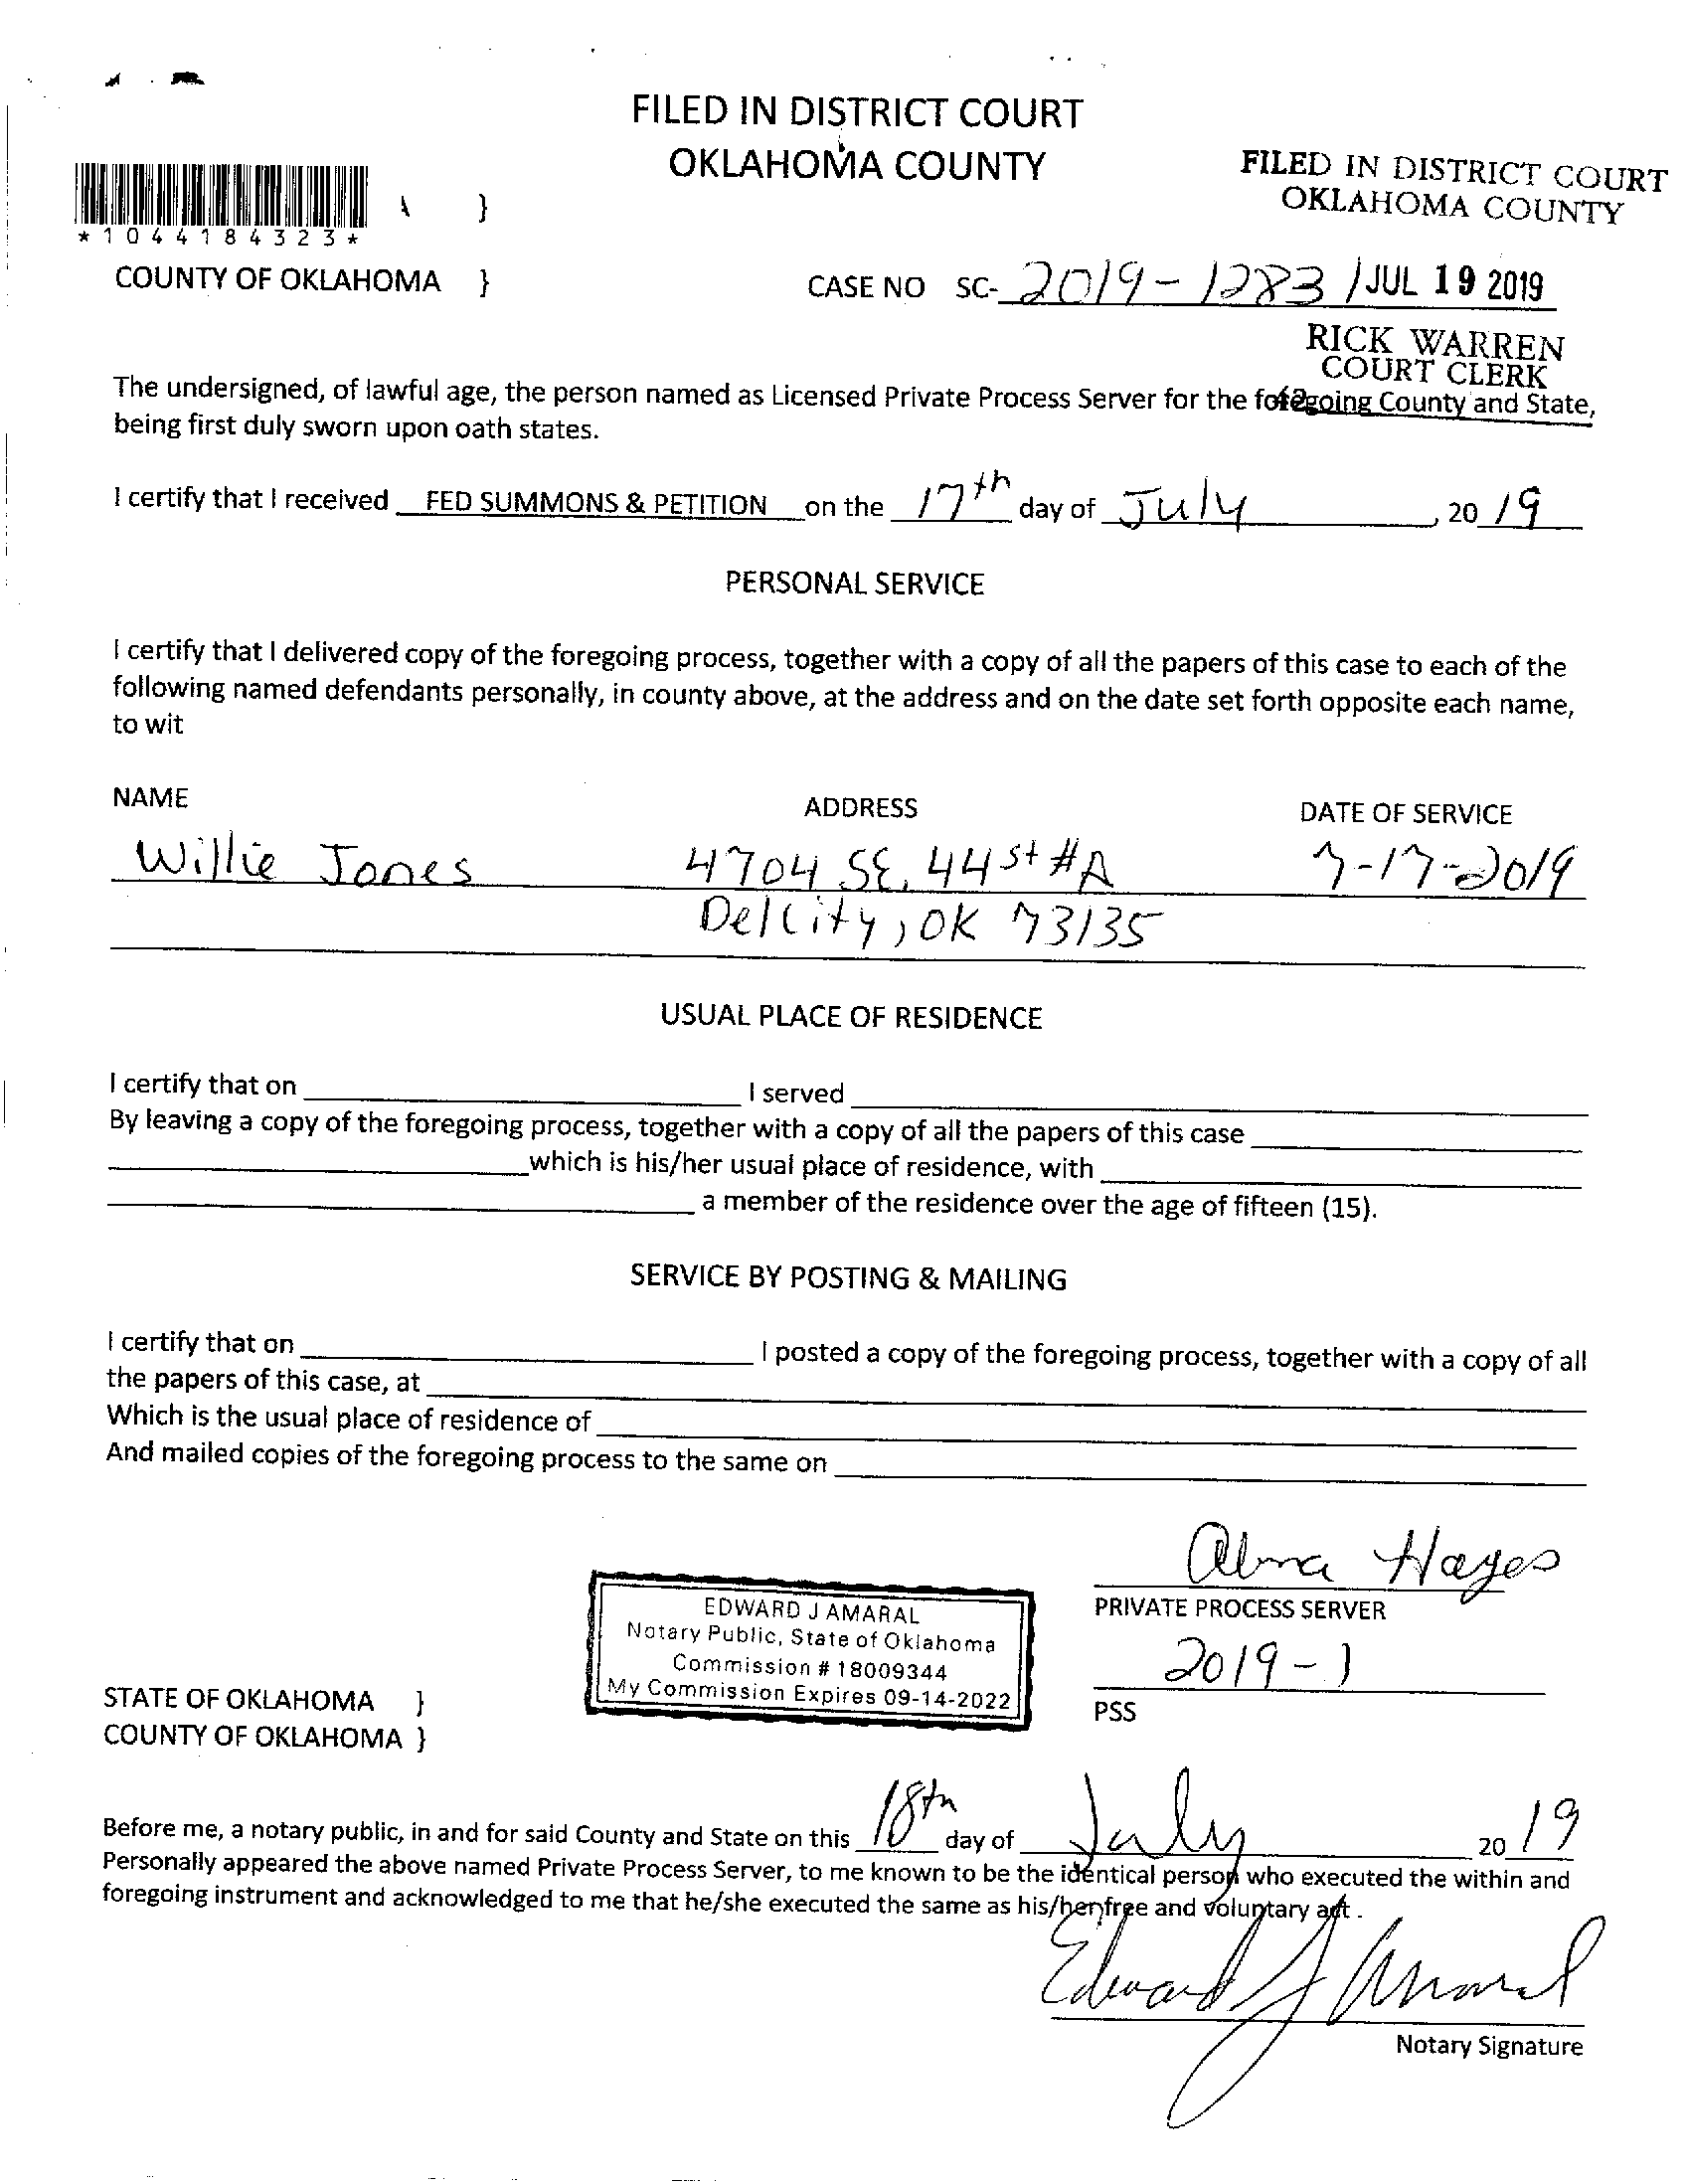 FILED IN DISTRICT COURT
OKLAHOMA COUNTY
FILED IN DISTRICT COURT
OKLAHOMA COUNTY
}
*1044184323*
COUNTY OF OKLAHOMA }
CASE NO SC- 2019-1283 / JUL 19 2019
RICK WARREN
COURT CLERK
The undersigned, of lawful age, the person named as Licensed Private Process Server for the foregoing County and State,
being first duly sworn upon oath states.
I certify that I received FED SUMMONS & PETITION on the 17th day of July, 2019
PERSONAL SERVICE
I certify that I delivered copy of the foregoing process, together with a copy of all the papers of this case to each of the
following named defendants personally, in county above, at the address and on the date set forth opposite each name,
to wit
NAME ADDRESS DATE OF SERVICE
Willie Jones 4704 SE. 44st #A 7-17-2019
Del City, OK 73135
USUAL PLACE OF RESIDENCE
I certify that on I served
By leaving a copy of the foregoing process, together with a copy of all the papers of this case
which is his/her usual place of residence, with
a member of the residence over the age of fifteen (15).
SERVICE BY POSTING & MAILING
I certify that on I posted a copy of the foregoing process, together with a copy of all
the papers of this case, at
Which is the usual place of residence of
And mailed copies of the foregoing process to the same on
Alma Hayes
PRIVATE PROCESS SERVER
EDWARD J AMARAL
Notary Public, State of Oklahoma
Commission # 18009344
My Commission Expires 09-14-2022
2019-1
PSS
STATE OF OKLAHOMA }
COUNTY OF OKLAHOMA }
Before me, a notary public, in and for said County and State on this 18th day of July 2019
Personally appeared the above named Private Process Server, to me known to be the identical person who executed the within and
foregoing instrument and acknowledged to me that he/she executed the same as his/her free and voluntary act .
Edward J Amaral
Notary Signature